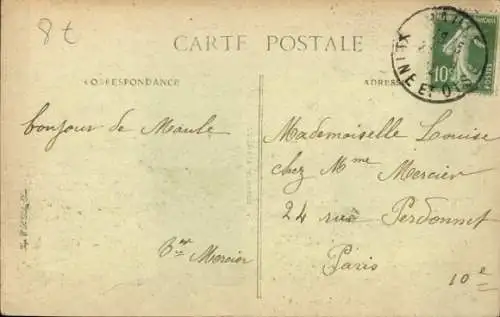 8 t
CARTE POSTALE
CORRESPONDANCE
ADRESSE
10c
POSTES
NE ET OISE
bonjour de Maule
Mercier
Mademoiselle Louise
chez Mme Mercier
24 rue Perdonnet
Paris
10e